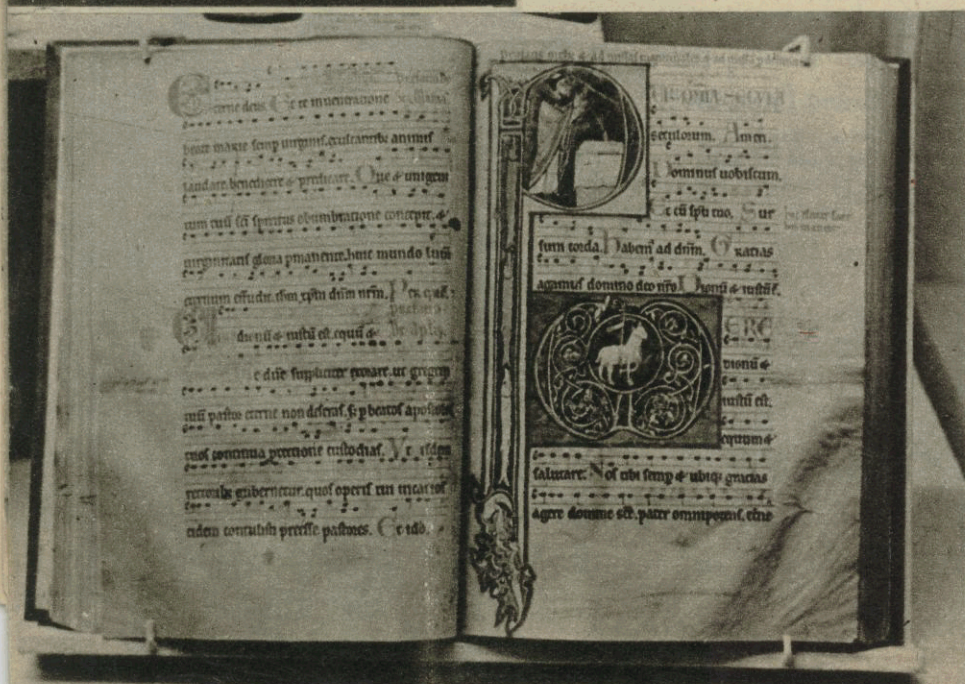 eterne deus. Et te in ueneratione
beate marie semp uirginis, exultantibʒ animis
laudare, benedicere & predicare. Que & unigeni
tum tuū sc̄i spiritus obumbratione concepit, &
uirginitatis gloria pmanente, huic mundo lum̄
eternum effudit, ihm̄ xp̄m dn̄m nr̄m. Per quē.
dignū & iustū est, equū &
e dn̄e suppliciter exorare, ut gregem
tuū pastor eterne non deseras, sʒ p beatos apostolos
tuos continua protectione custodias. Vt isdem
rectoribʒ gubernetur, quos operis tui uicarios
eidem contulisti preesse pastores. Et ideo.
P
ER OMIA SECULA
seculorum. Amen.
Dominus uobiscum.
Et cū spū tuo. Sur
sum corda. Habem' ad dn̄m. Gracias
agamus domino deo nr̄o. Dignū & iustū ē.
ERE
dignū &
iustū est,
equum &
salutare. Nos tibi semp & ubiqʒ gracias
agere domine sc̄e, pater omnipotens, et̄ne